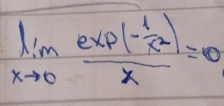 lim x→0 exp(-1/x²)/x = 0